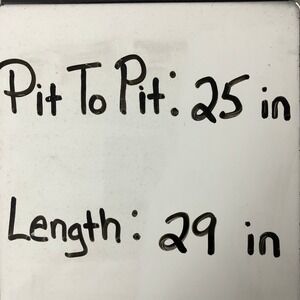 Pit To Pit: 25 in
Length: 29 in